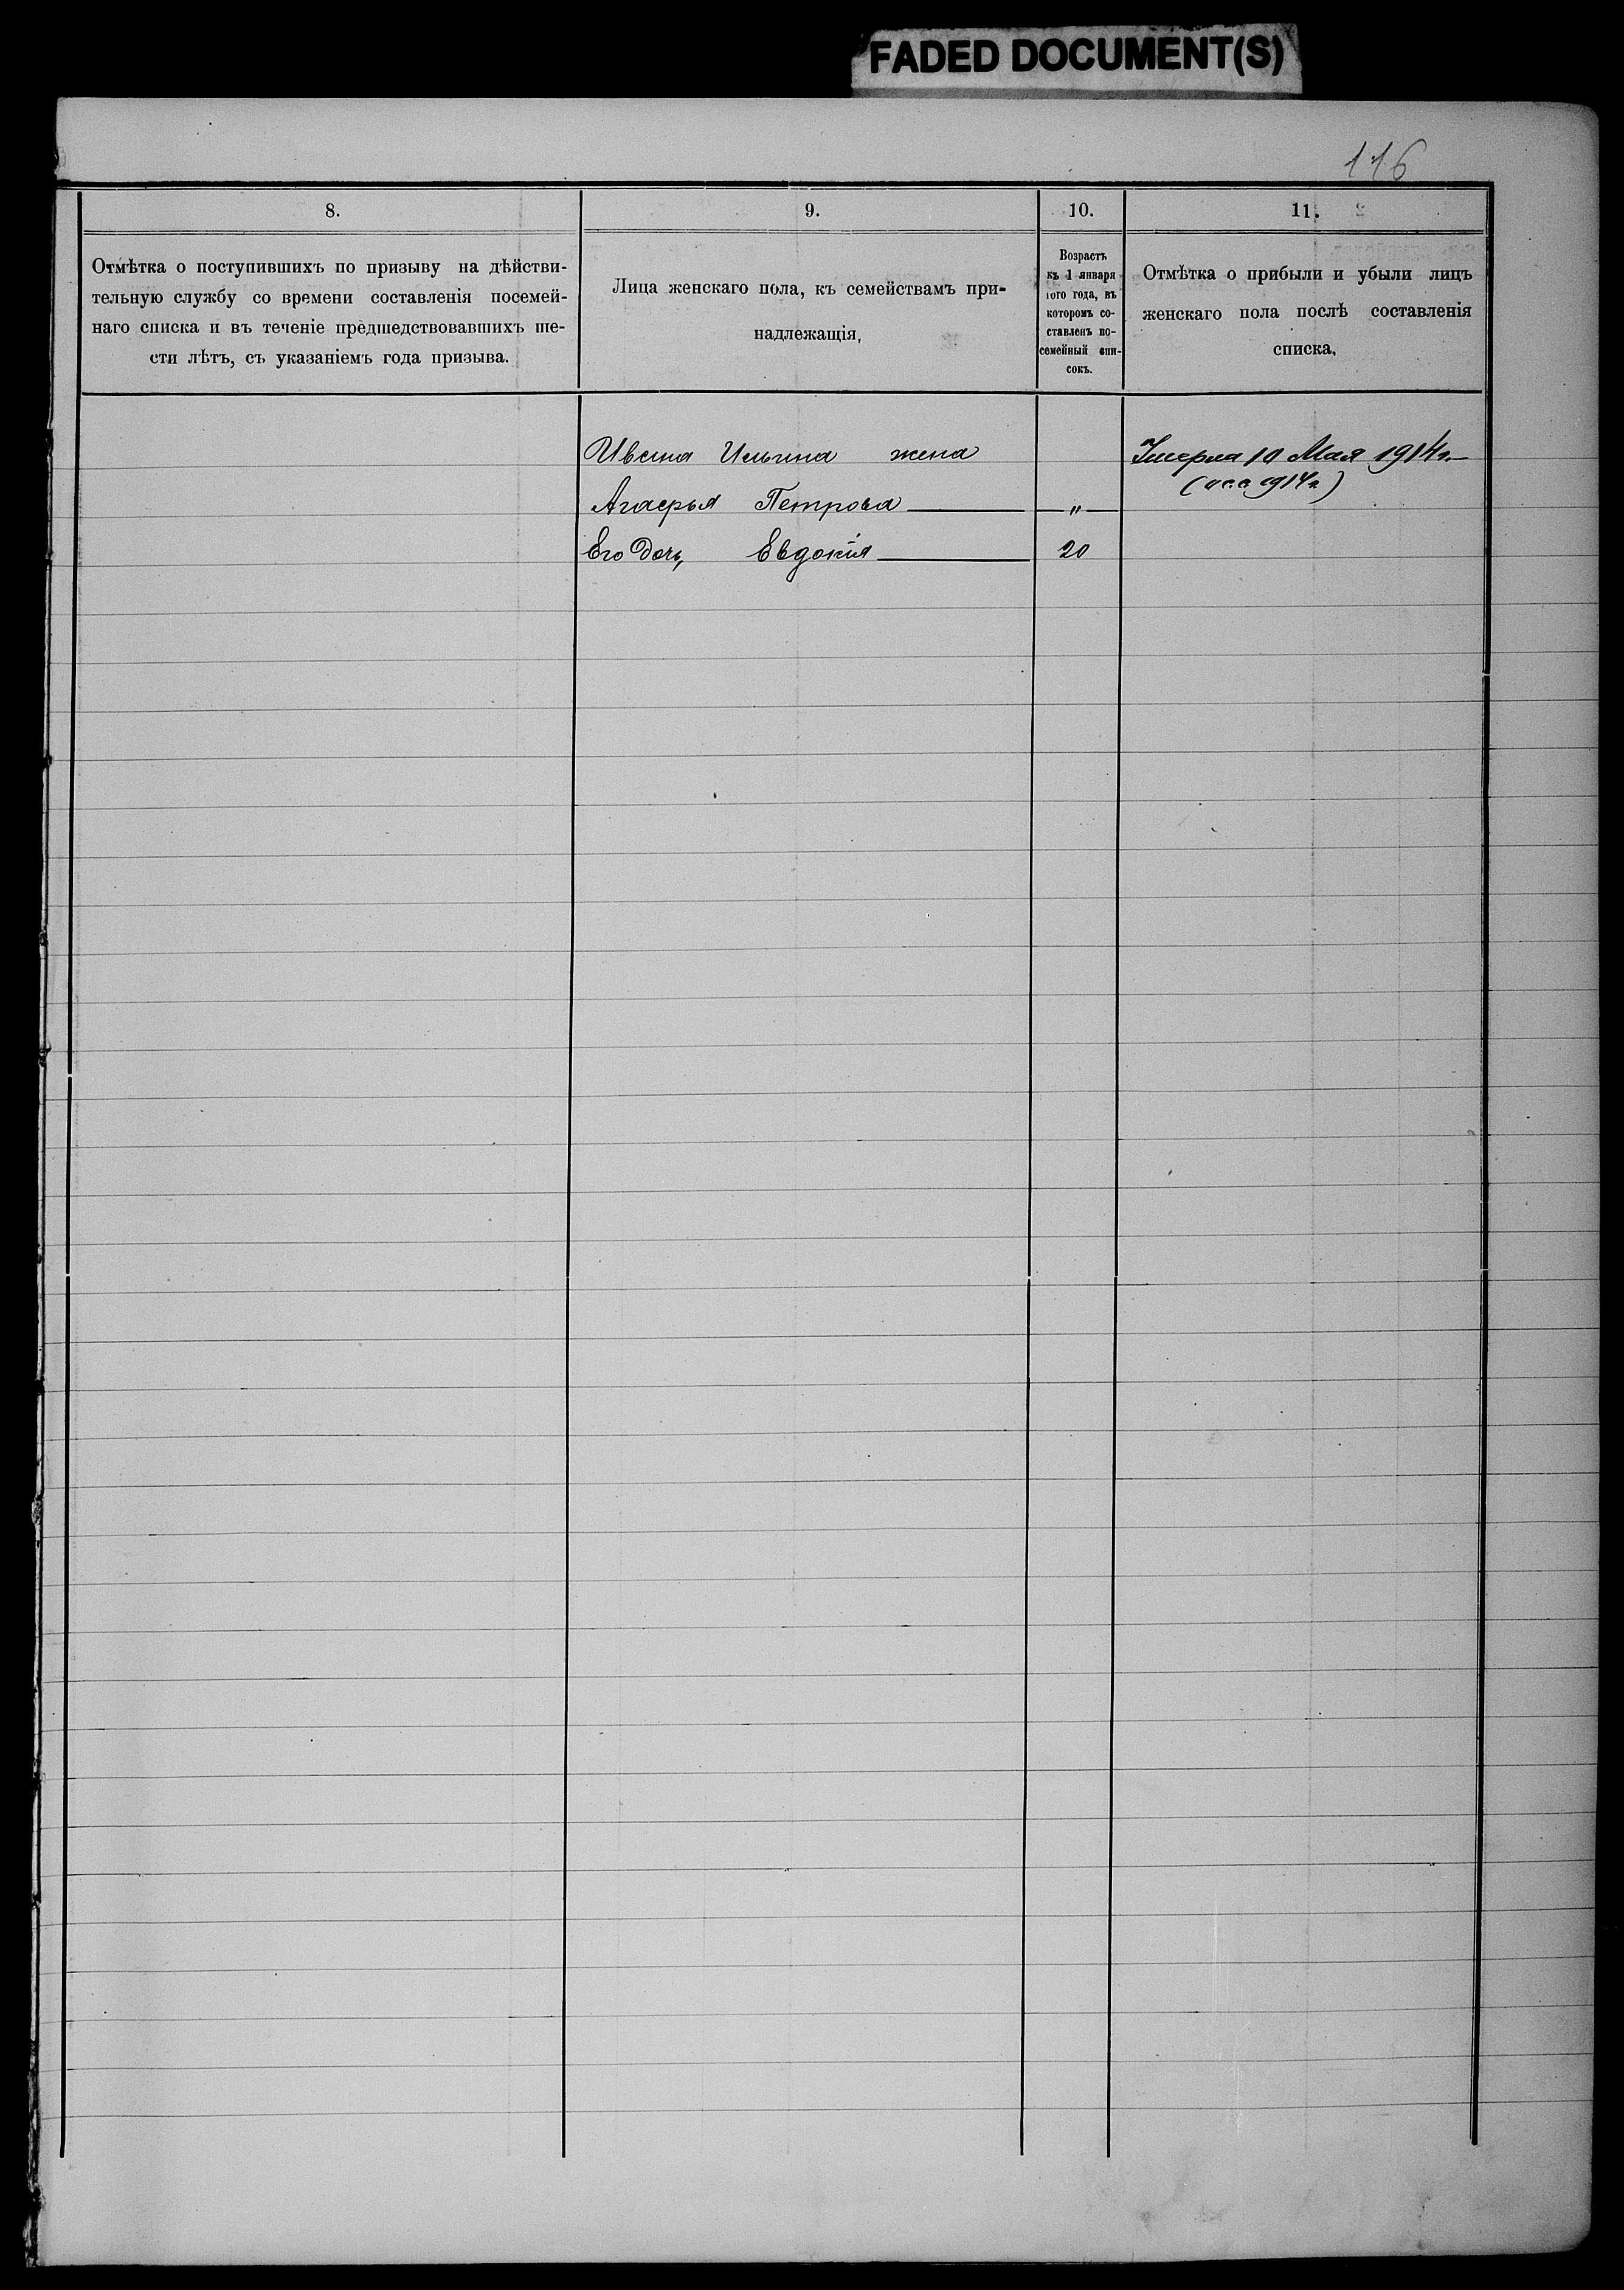 FADED DOCUMENT(S)
116
8.
9.
10.
11.
Отмѣтка о поступившихъ по призыву на дѣйстви-
тельную службу со времени составленія посемей-
наго списка и въ теченіе предшедствовавшихъ ше-
сти лѣтъ, съ указаніемъ года призыва.
Лица женскаго пола, къ семействамъ при-
надлежащія,
Возрастъ
къ 1 января
того года, въ
которомъ со-
ставленъ по-
семейный спи-
сокъ.
Отмѣтка о прибыли и убыли лицъ
женскаго пола послѣ составленія
списка,
Ивана Ильина жена
Умерла 10 Мая 1914 г.
1914 г.)
Агафья Петрова "
Его дочь, Евдокія 20